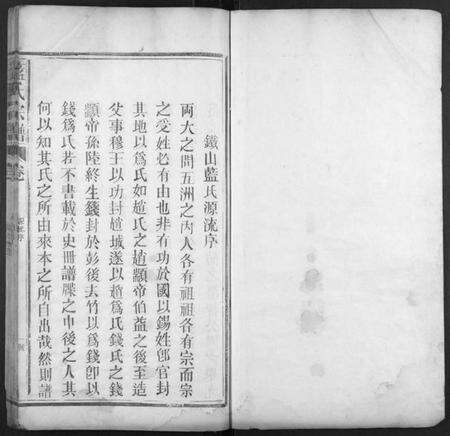 鐵山藍氏源流序
兩大之間五洲之內人各有祖祖各有宗而宗
之受姓必有由也非有功於國以錫姓卽官封
其地以爲氏如趙氏之趙顓帝伯益之後至造
父事穆王以功封趙城遂以趙爲氏錢氏之錢
顓帝孫陸終生錢封於彭後去竹以爲錢卽以
錢爲氏若不書載於史冊譜牒之中後之人其
何以知其氏之所由來本之所自出哉然則譜
藍氏宗譜